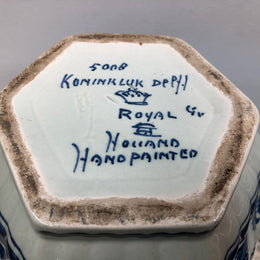 5008
KONINKLIJK DELFT
ROYAL
HOLLAND
HANDPAINTED